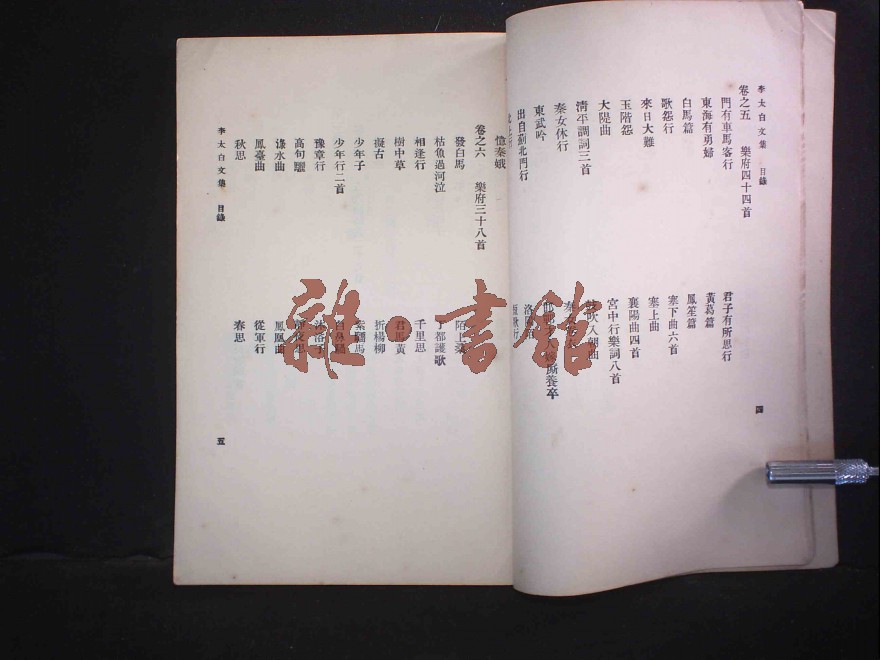 李太白文集 目錄
四
卷之五 樂府四十四首
門有車馬客行
君子有所思行
東海有勇婦
黃葛篇
白馬篇
鳳笙篇
歌怨行
塞下曲六首
來日大難
塞上曲
玉階怨
襄陽曲四首
大隄曲
宮中行樂詞八首
清平調詞三首
鼓吹入朝曲
秦女休行
東武吟
出自薊北門行
憶秦娥
卷之六 樂府三十八首
發白馬
陌上桑
枯魚過河泣
丁都護歌
相逢行
千里思
樹中草
君馬黃
擬古
折楊柳
少年子
紫騮馬
少年行二首
白鼻騧
豫章行
高句驪
淥水曲
鳳凰曲
鳳臺曲
從軍行
秋思
春思
李太白文集 目錄
五
雜·書館